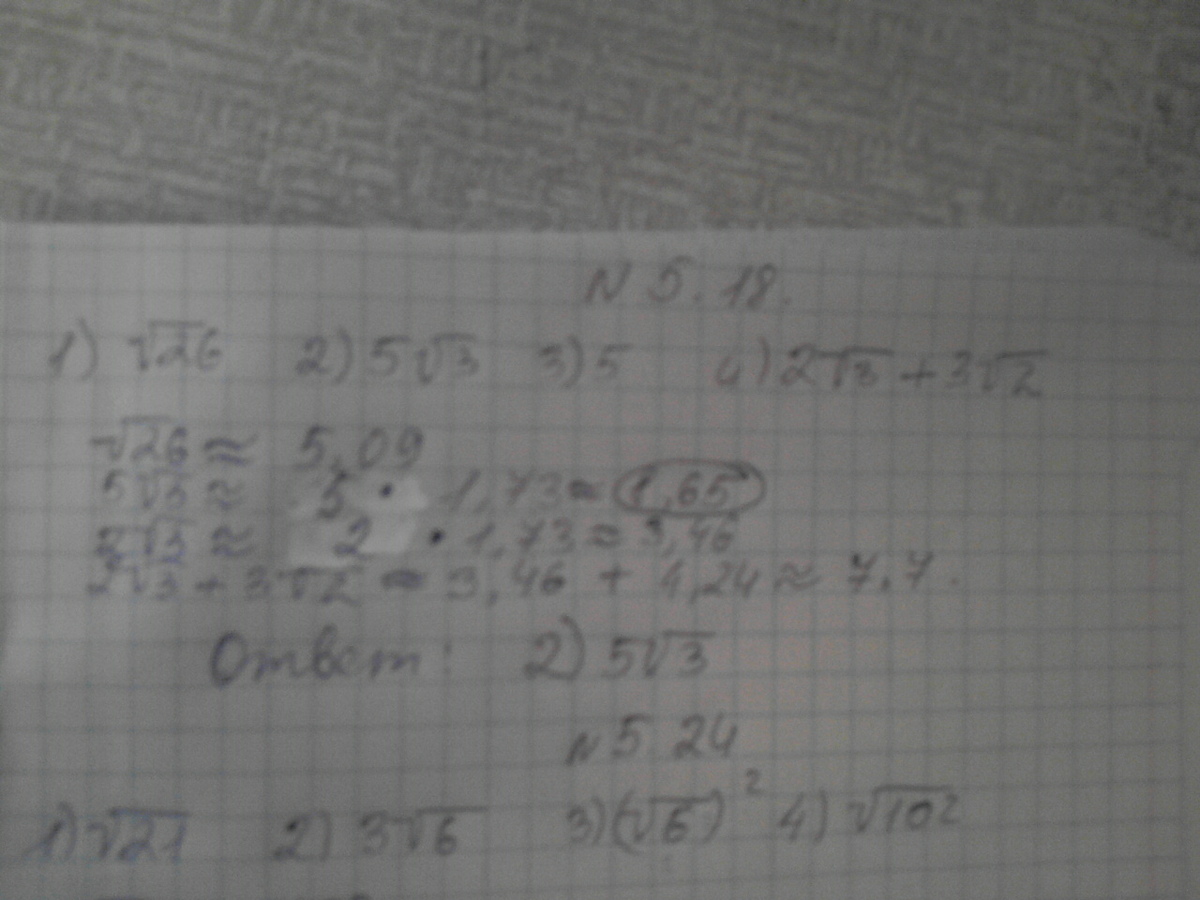 N 5.18.
1) √26 2) 5√3 3) 5 4) 2√3 + 3√2
√26 ≈ 5,09
5√3 ≈ 5 · 1,73 ≈ 1,65
2√3 ≈ 2 · 1,73 ≈ 3,46
2√3 + 3√2 ≈ 3,46 + 4,24 ≈ 7,7.
Ответ: 2) 5√3
N 5.24
1) √21 2) 3√6 3) (√6)² 4) √102